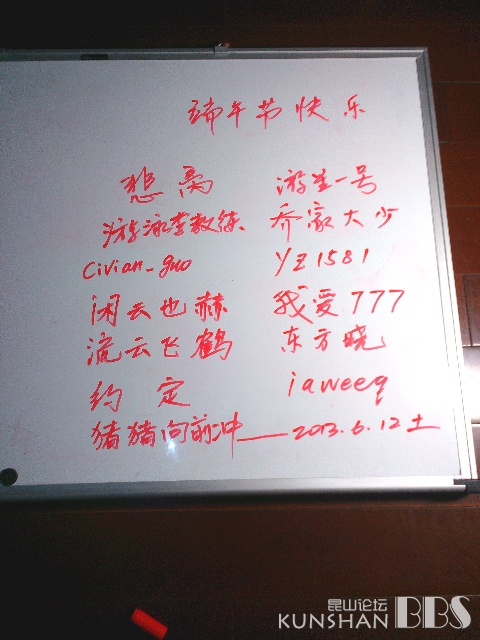 端午节快乐
悲离 游生一号
游泳李教练 乔家大少
civian_guo YZ1581
闲云也赫 我爱777
流云飞鹤 东方晓
约定 iaweeq
猪猪向前冲——2013.6.12土
昆山论坛
KUNSHAN BBS